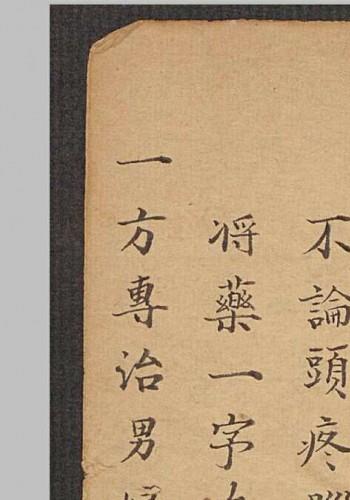 不論頭疼
将藥一字
一方專治男